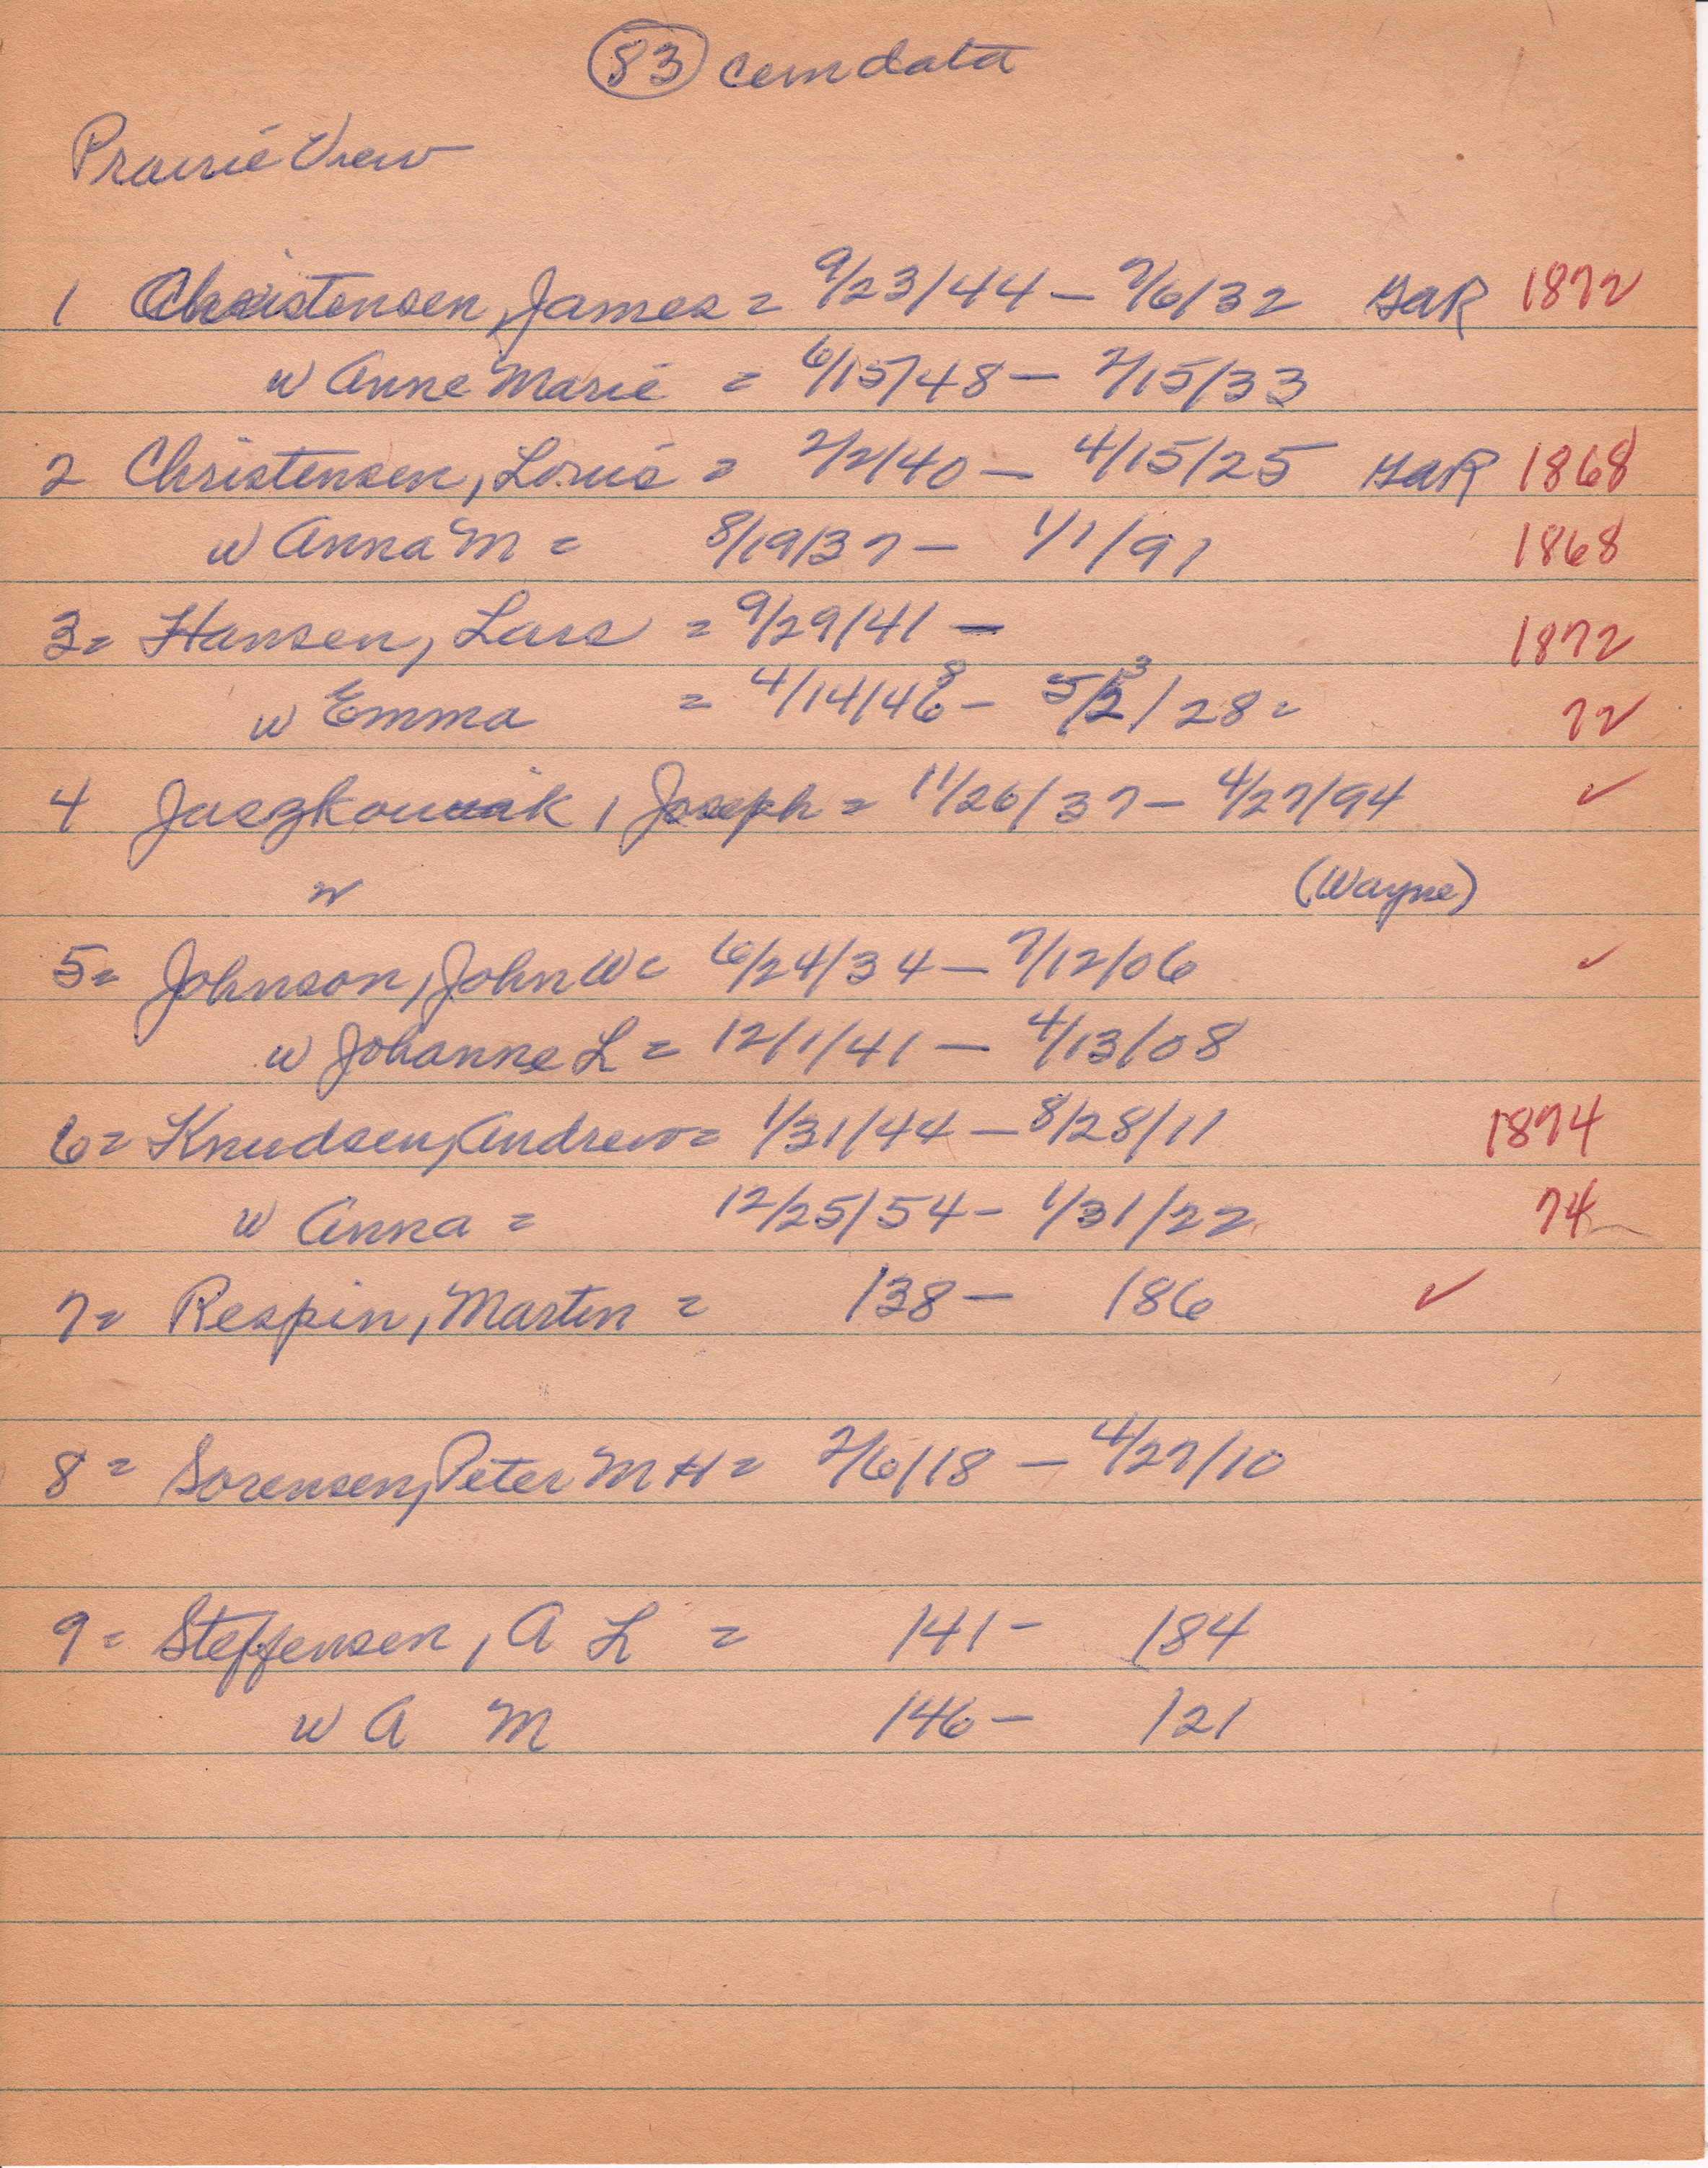 83 cemdata
Prairie View
1 Christensen, James = 9/23/44 - 7/6/32 GAR 1872
w Anne Marie = 6/15/48 - 2/15/33
2 Christensen, Louis = 2/2/40 - 4/15/25 GAR 1868
w Anna M = 8/19/37 - 1/1/91 1868
3 = Hansen, Lars = 9/29/41 - 1872
w Emma = 4/14/46 8 - 5/2 3/28 = 72
4 Jaszkowiak, Joseph = 11/26/37 - 4/27/94 ✓
w (Wayne)
5 = Johnson, John W = 6/24/34 - 7/12/06 ✓
w Johanne L = 12/1/41 - 4/13/08
6 = Knudsen, Andrew = 1/31/44 - 8/28/11 1874
w Anna = 12/25/54 - 1/31/22 74
7 = Respin, Martin = /38 - /86 ✓
8 = Sorensen, Peter M H = 2/6/18 - 4/27/10
9 = Steffensen, A L = /41 - /84
w A M /46 - /21